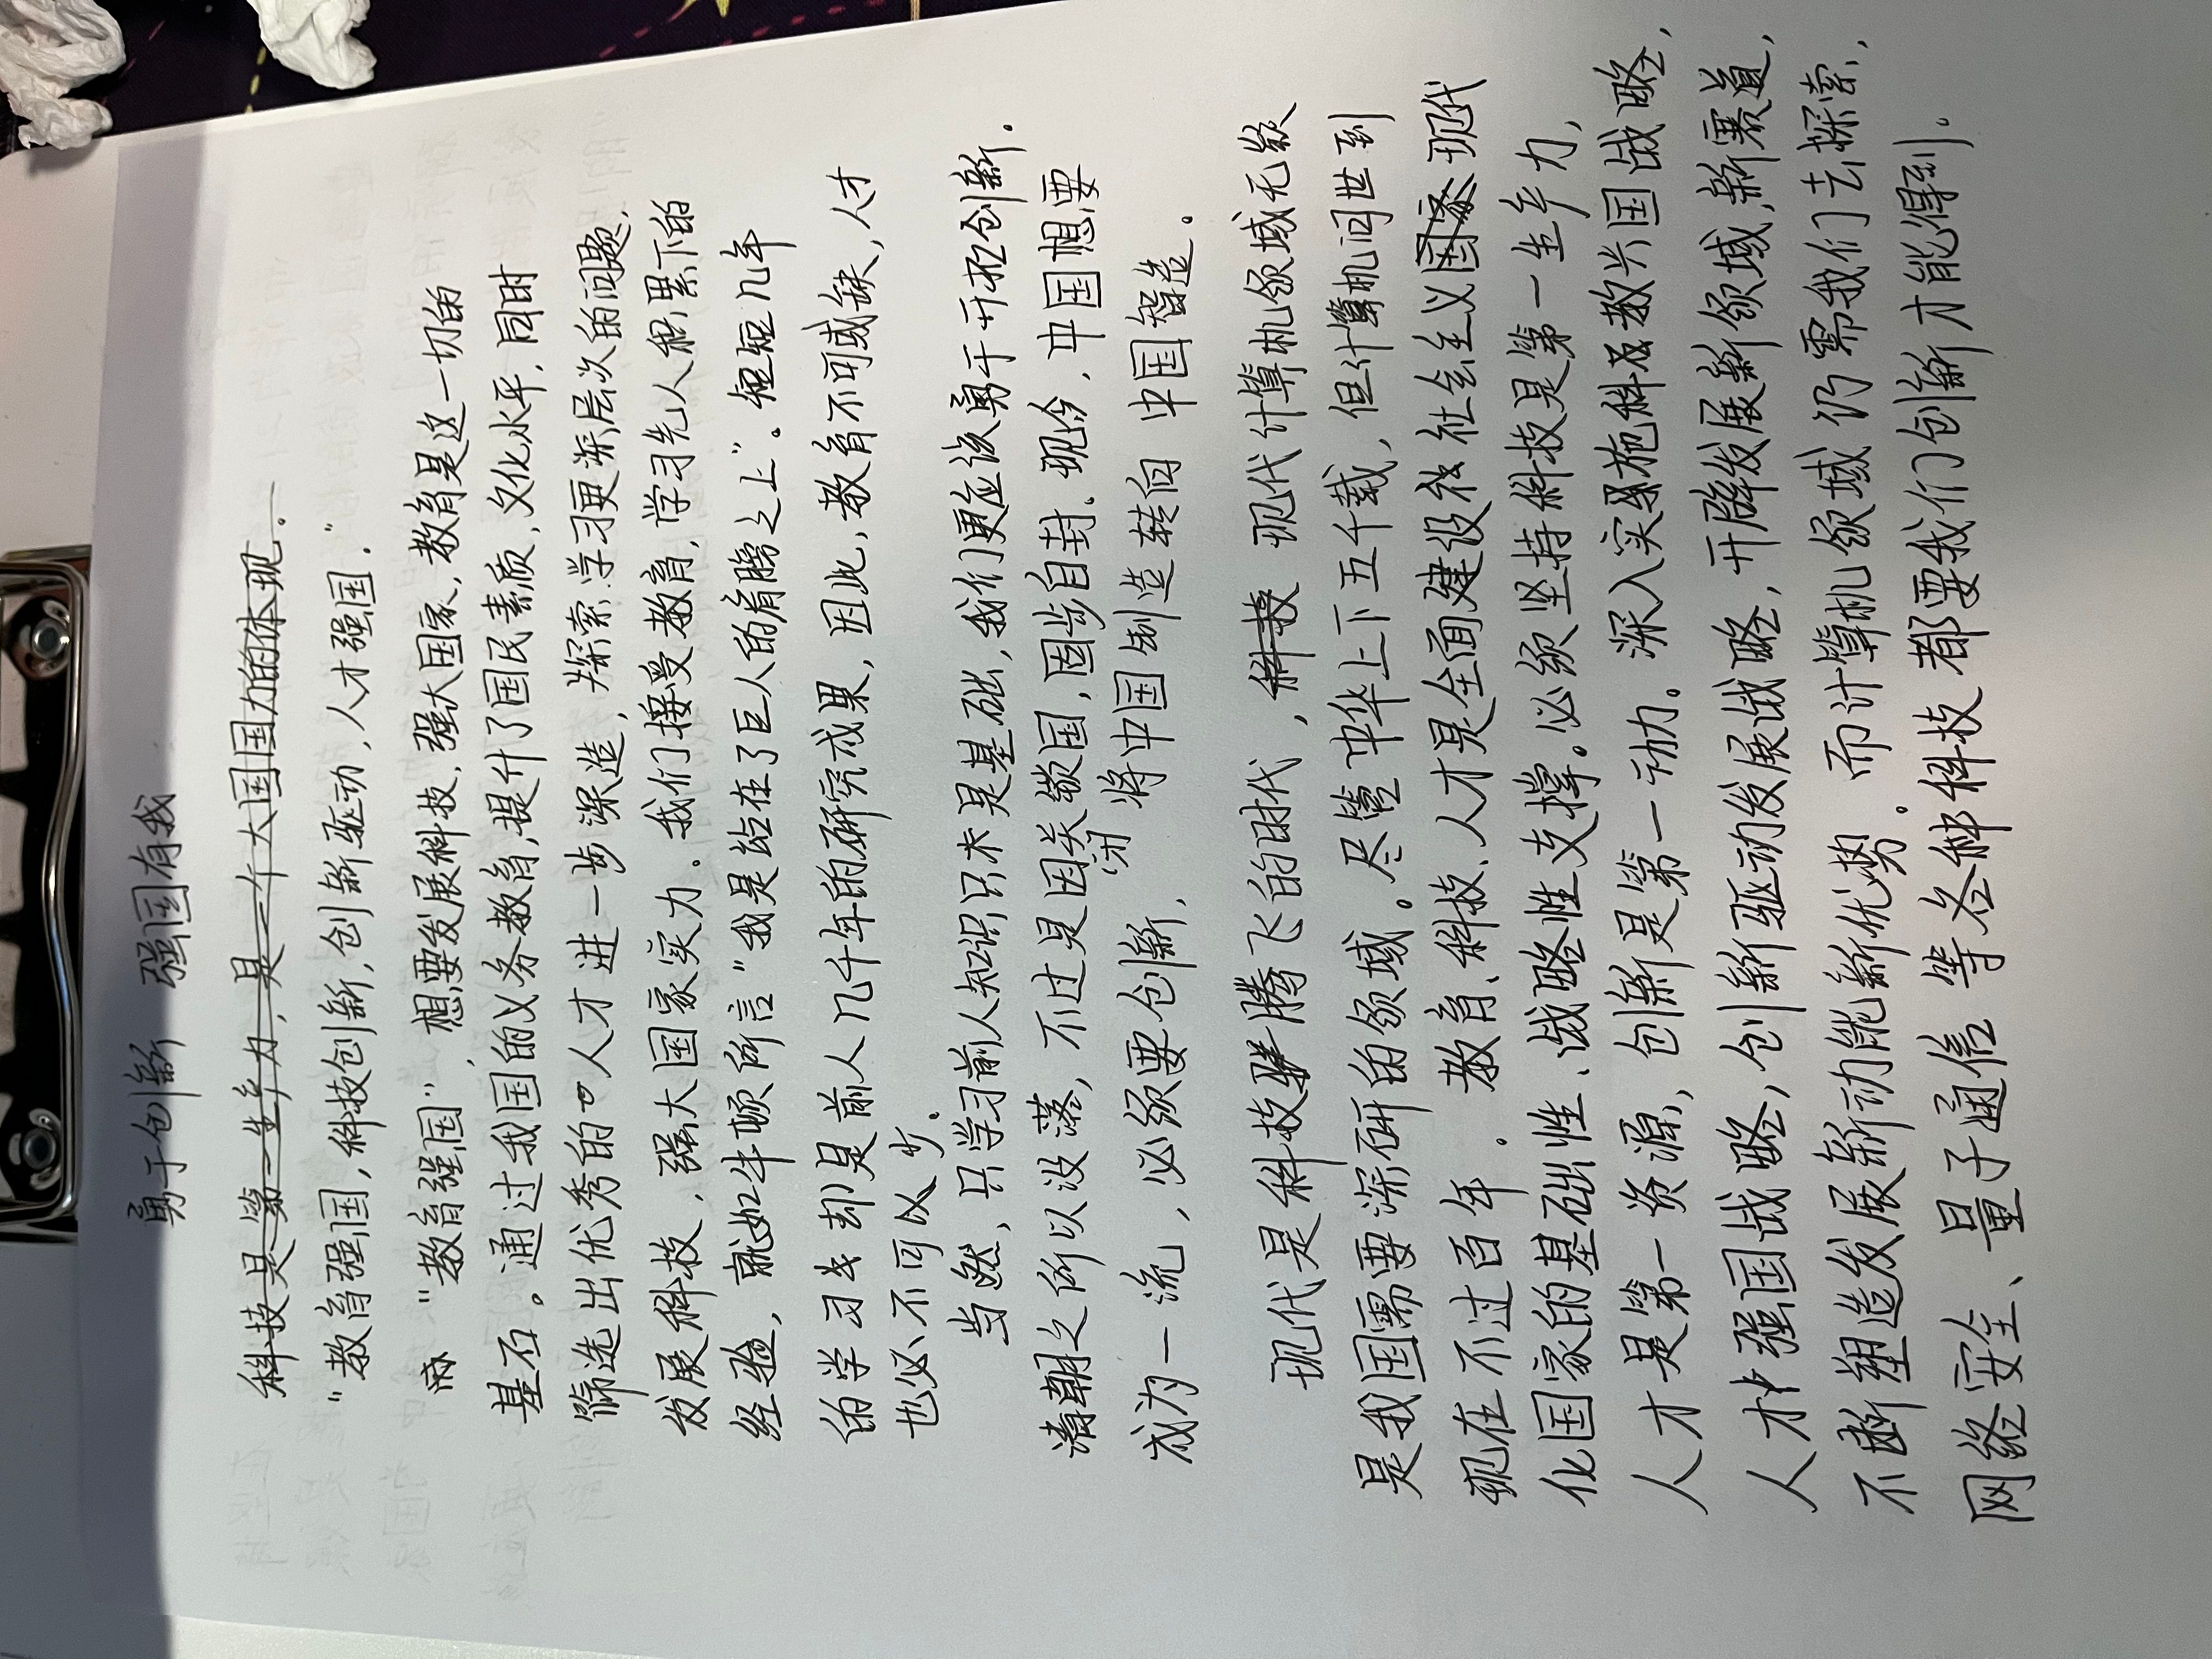 勇于创新 强国有我
科技是第一生产力,是一个大国国力的体现。
"教育强国,科技创新,创新驱动,人才强国."
"教育强国",想要发展科技.强大国家,教育是这一切的
基石。通过我国的义务教育,提升了国民素质,文化水平,同时
筛选出优秀的人才进一步深造,探索.学习更深层次的问题,
发展科技,强大国家实力.我们接受教育,学习先人积累下的
经验,就如牛顿所言"我是站在了巨人的肩膀之上"。短短几年
的学习却是前人几千年的研究成果,因此,教育不可或缺,人才
也必不可以少.
当然,只学习前人知识只是基础,我们更应该勇于开拓创新.
清朝之所以没落,不过是因闭关锁国,固步自封.现今,中国想要
成为一流,必须要创新,将中国制造转向中国智造。
现代是科技腾飞的时代,科技 现代计算机领域无疑
是我国需要深研的领域。尽管中华上下五千载,但计算机问世到
现在不过百年.教育、科技、人才是全面建设社会主义国家现代
化国家的基础性、战略性支撑。必须坚持科技是第一生产力,
人才是第一资源,创新是第一动力。深入实施科教兴国战略,
人才强国战略,创新驱动发展战略,开辟发展新领域,新赛道,
不断塑造发展新动能新优势。而计算机领域仍需我们去探索,
网络安全、量子通信等各种科技都要我们创新才能得到。